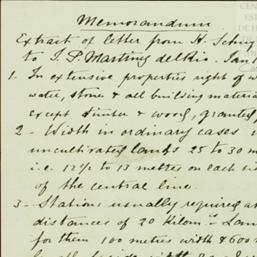 Memorandum
Extract of letter from H. Schuy
to J. P. Martinez del Rio. San
1. In extensive properties right of w
water, stone & all building materia
except timber & wood, granted
2 - Width in ordinary cases
uncultivated lands 25 to 30 m
i.e. 12½ to 13 metres on each si
of the central line.
3 - Stations usually required a
distances of 20 Kilom.s Lan
for them 100 metres width & 600
CEN
ES
DE H